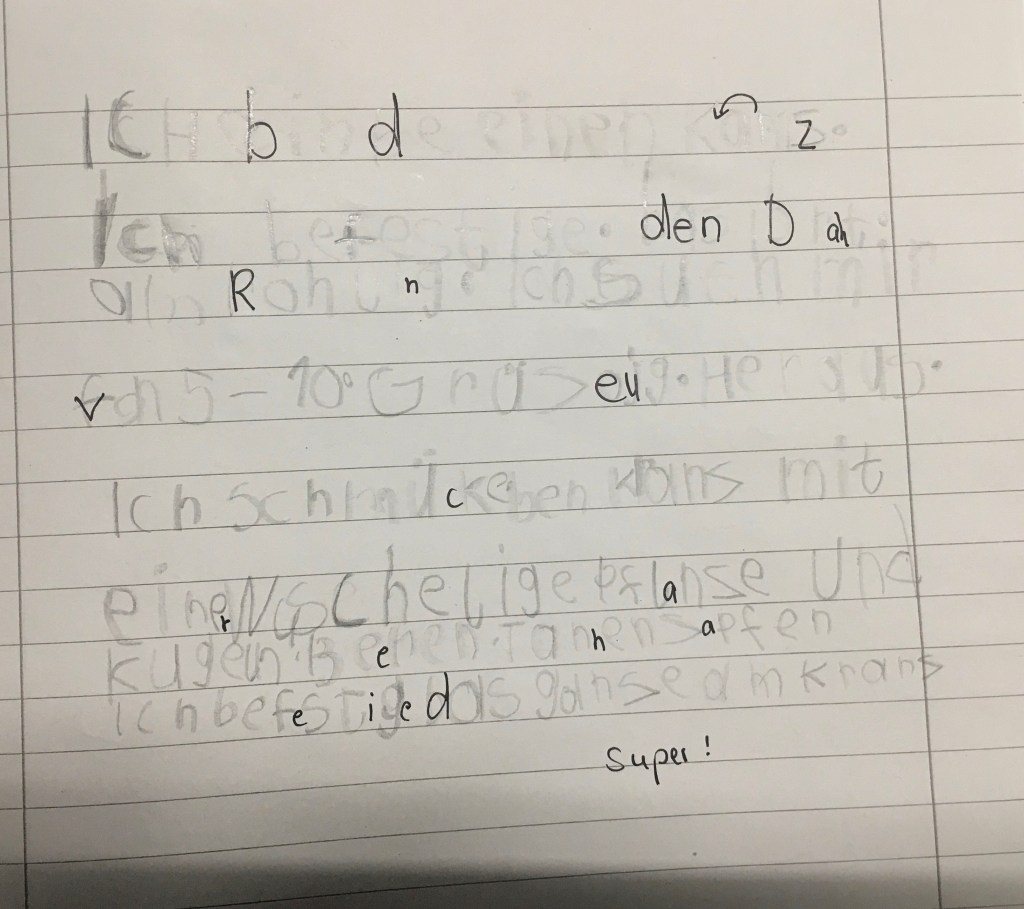 ICH binde einen Krans.
Ich befestige. den Draht in
Rohung. Ich Such mir
5-10 Graseug. Heraus.
Ich schmücke den Krans mit
einer Uschelige pflanse Und
kugeln. Beeren. Tannensapfen
ich befestige das ganse am krans
super!